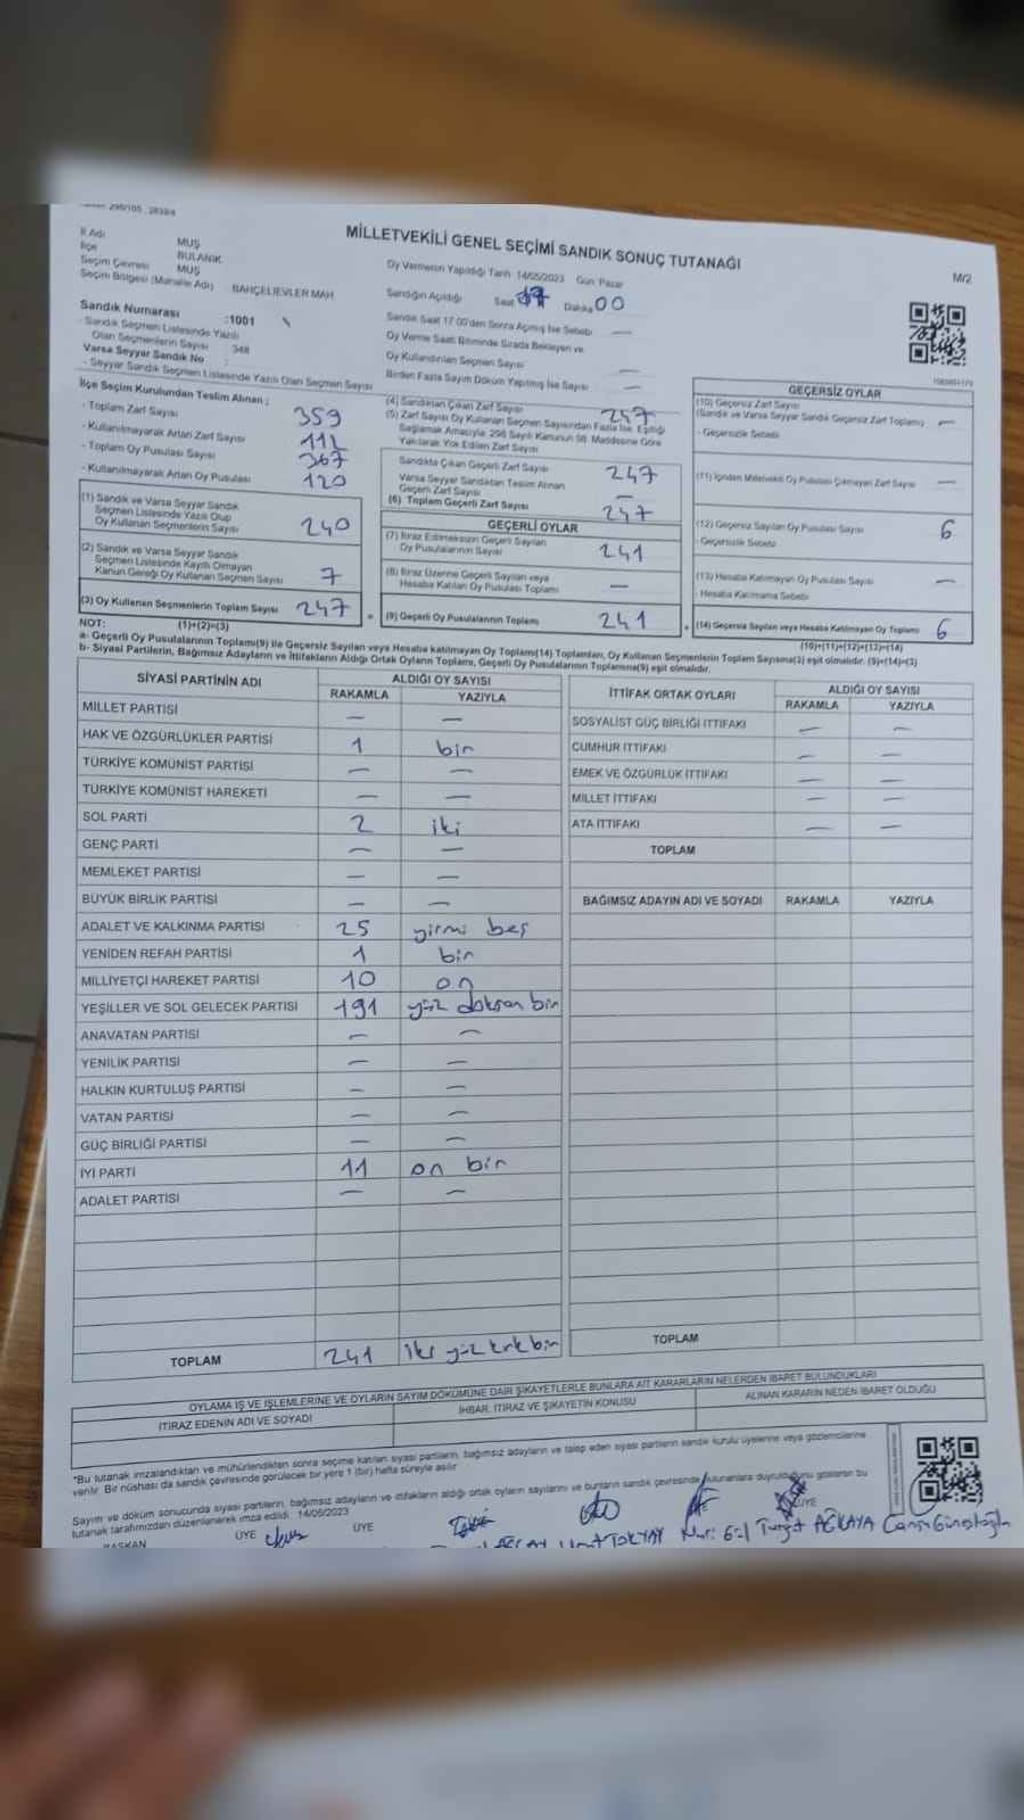 MİLLETVEKİLİ GENEL SEÇİMİ SANDIK SONUÇ TUTANAĞI
M/2
İl Adı MUŞ
İlçe BULANIK
Seçim Çevresi MUŞ
Seçim Bölgesi (Mahalle Adı) BAHÇELİEVLER MAH
Oy Vermenin Yapıldığı Tarih 14/05/2023 Gün: Pazar
Sandığın Açıldığı Saat 17 Dakika 00
Sandık Saat 17:00'den Sonra Açılmış İse Sebebi —
Oy Verme Saati Bitiminde Sırada Bekleyen ve
Oy Kullandırılan Seçmen Sayısı —
Birden Fazla Sayım Döküm Yapılmış İse Sayısı —
Sandık Numarası :1001
- Sandık Seçmen Listesinde Yazılı
Olan Seçmenlerin Sayısı : 348
Varsa Seyyar Sandık No :
- Seyyar Sandık Seçmen Listesinde Yazılı Olan Seçmen Sayısı
İlçe Seçim Kurulundan Teslim Alınan :
- Toplam Zarf Sayısı 359
- Kullanılmayarak Artan Zarf Sayısı 112
- Toplam Oy Pusulası Sayısı 367
- Kullanılmayarak Artan Oy Pusulası 120
(1) Sandık ve Varsa Seyyar Sandık
Seçmen Listesinde Yazılı Olup
Oy Kullanan Seçmenlerin Sayısı 240
(2) Sandık ve Varsa Seyyar Sandık
Seçmen Listesinde Kayıtlı Olmayan
Kanun Gereği Oy Kullanan Seçmen Sayısı 7
(3) Oy Kullanan Seçmenlerin Toplam Sayısı 247
(1)+(2)=(3)
(4) Sandıktan Çıkan Zarf Sayısı 247
(5) Zarf Sayısı Oy Kullanan Seçmen Sayısından Fazla İse, Eşitliği
Sağlamak Amacıyla 298 Sayılı Kanunun 98. Maddesine Göre
Yakılarak Yok Edilen Zarf Sayısı
Sandıkta Çıkan Geçerli Zarf Sayısı 247
Varsa Seyyar Sandıktan Teslim Alınan
Geçerli Zarf Sayısı —
(6) Toplam Geçerli Zarf Sayısı 247
GEÇERLİ OYLAR
(7) İtiraz Edilmeksizin Geçerli Sayılan
Oy Pusulalarının Sayısı 241
(8) İtiraz Üzerine Geçerli Sayılan veya
Hesaba Katılan Oy Pusulası Toplamı —
(9) Geçerli Oy Pusulalarının Toplamı 241
GEÇERSİZ OYLAR
(10) Geçersiz Zarf Sayısı
(Sandık ve Varsa Seyyar Sandık Geçersiz Zarf Toplamı) —
- Geçersizlik Sebebi
(11) İçinden Milletvekili Oy Pusulası Çıkmayan Zarf Sayısı —
(12) Geçersiz Sayılan Oy Pusulası Sayısı 6
- Geçersizlik Sebebi
(13) Hesaba Katılmayan Oy Pusulası Sayısı —
- Hesaba Katılmama Sebebi
(14) Geçersiz Sayılan veya Hesaba Katılmayan Oy Toplamı 6
(10)+(11)+(12)+(13)=(14)
NOT:
a- Geçerli Oy Pusulalarının Toplamı(9) ile Geçersiz Sayılan veya Hesaba katılmayan Oy Toplam(14) Toplamları, Oy Kullanan Seçmenlerin Toplam Sayısına(3) eşit olmalıdır. (9)+(14)=(3)
b- Siyasi Partilerin, Bağımsız Adayların ve İttifakların Aldığı Ortak Oyların Toplamı, Geçerli Oy Pusulalarının Toplamına(9) eşit olmalıdır.
SİYASİ PARTİNİN ADI ALDIĞI OY SAYISI
RAKAMLA YAZIYLA
MİLLET PARTİSİ — —
HAK VE ÖZGÜRLÜKLER PARTİSİ 1 bir
TÜRKİYE KOMÜNİST PARTİSİ — —
TÜRKİYE KOMÜNİST HAREKETİ — —
SOL PARTİ 2 iki
GENÇ PARTİ — —
MEMLEKET PARTİSİ — —
BÜYÜK BİRLİK PARTİSİ — —
ADALET VE KALKINMA PARTİSİ 25 yirmi beş
YENİDEN REFAH PARTİSİ 1 bir
MİLLİYETÇİ HAREKET PARTİSİ 10 on
YEŞİLLER VE SOL GELECEK PARTİSİ 191 yüz doksan bir
ANAVATAN PARTİSİ — —
YENİLİK PARTİSİ — —
HALKIN KURTULUŞ PARTİSİ — —
VATAN PARTİSİ — —
GÜÇ BİRLİĞİ PARTİSİ — —
İYİ PARTİ 11 on bir
ADALET PARTİSİ — —
TOPLAM 241 iki yüz kırk bir
İTTİFAK ORTAK OYLARI ALDIĞI OY SAYISI
RAKAMLA YAZIYLA
SOSYALİST GÜÇ BİRLİĞİ İTTİFAKI — —
CUMHUR İTTİFAKI — —
EMEK VE ÖZGÜRLÜK İTTİFAKI — —
MİLLET İTTİFAKI — —
ATA İTTİFAKI — —
TOPLAM
BAĞIMSIZ ADAYIN ADI VE SOYADI RAKAMLA YAZIYLA
TOPLAM
OYLAMA İŞ VE İŞLEMLERİNE VE OYLARIN SAYIM DÖKÜMÜNE DAİR ŞİKAYETLERLE BUNLARA AİT KARARLARIN NELERDEN İBARET BULUNDUKLARI
İTİRAZ EDENİN ADI VE SOYADI İHBAR, İTİRAZ VE ŞİKAYETİN KONUSU ALINAN KARARIN NEDEN İBARET OLDUĞU
*Bu tutanak imzalandıktan ve mühürlendikten sonra seçime katılan siyasi partilerin, bağımsız adayların ve talep eden siyasi partilerin sandık kurulu üyelerine veya gözlemcilerine
verilir. Bir nüshası da sandık çevresinde görülecek bir yere 1 (bir) hafta süreyle asılır.
Sayım ve döküm sonucunda siyasi partilerin, bağımsız adayların ve ittifakların aldığı ortak oyların sayılarını ve bunların sandık çevresinde
tutanak tarafımızdan düzenlenerek imza edildi. 14/05/2023
BAŞKAN ÜYE ÜYE ÜYE
TOKYAY Nuri Gül Turgt AĞKAYA